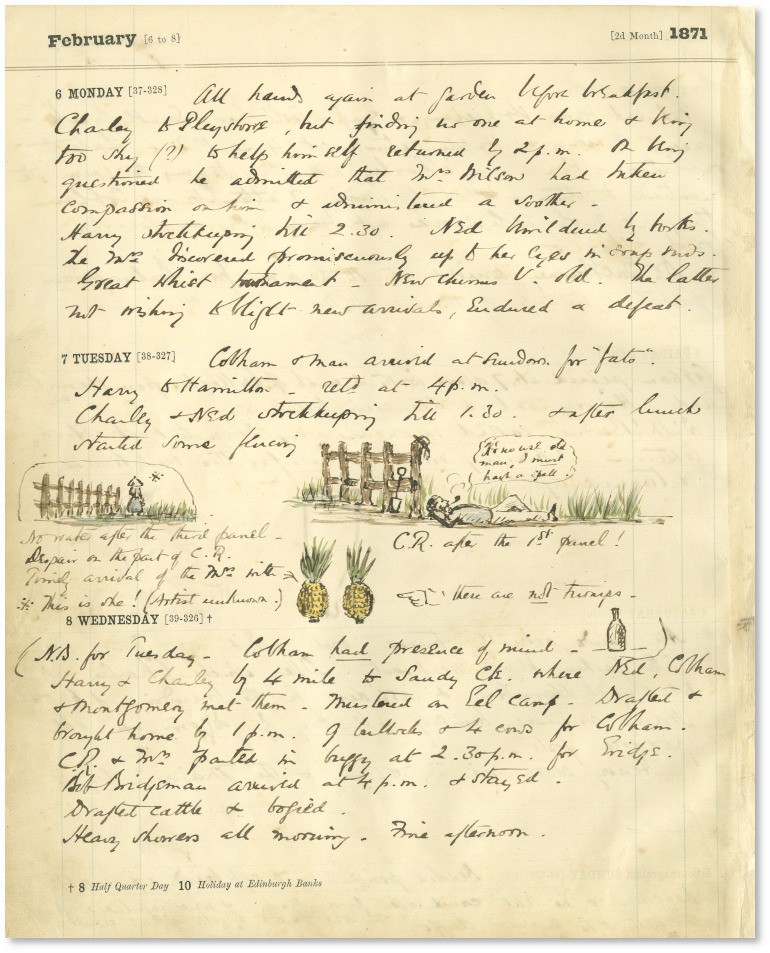 February [6 to 8]
[2d Month] 1871
6 MONDAY [37-328] All hands again at garden before breakfast.
Charley to Pleystowe, but finding no one at home & being
too shy (?) to help himself returned by 2 p.m. On being
questioned he admitted that Mrs Wilson had taken
compassion on him & administered a soother.
Harry stockkeeping till 2.30. Ned by
The Mrs discovered promiscuously up to her eyes in soap suds.
Great Whist tournament - New chums V. old. The latter
not wishing to blight new arrivals, Endured a defeat.
7 TUESDAY [38-327] Cobham & man arrived at sundown for "fats".
Harry to Hamilton - retd at 4 p.m.
Charley & Ned stockkeeping till 1.30. & after lunch
started some fencing
It's no use old
man, I must
have a spell!
No water after the third panel -
Despair on the part of C.R.
Timely arrival of the Mrs with
This is she! (Artist unknown.)
C.R. after the 1st panel!
these are not turnips -
8 WEDNESDAY [39-326] †
(N.B. for Tuesday - Cobham had presence of mind - )
Harry & Charley by 4 mile to Sandy Ck. where Ned, Cobham
& Montgomery met them - Mustered on Eel camp - Drafted &
brought home by 1 p.m. 9 bullocks & 4 cows for Cobham.
C.R. & Mrs started in buggy at 2.30 p.m. for Eridge.
Bob Bridgeman arrived at 4 p.m. & stayed.
Drafted cattle & bogied.
Heavy showers all morning - Fine afternoon.
† 8 Half Quarter Day 10 Holiday at Edinburgh Banks